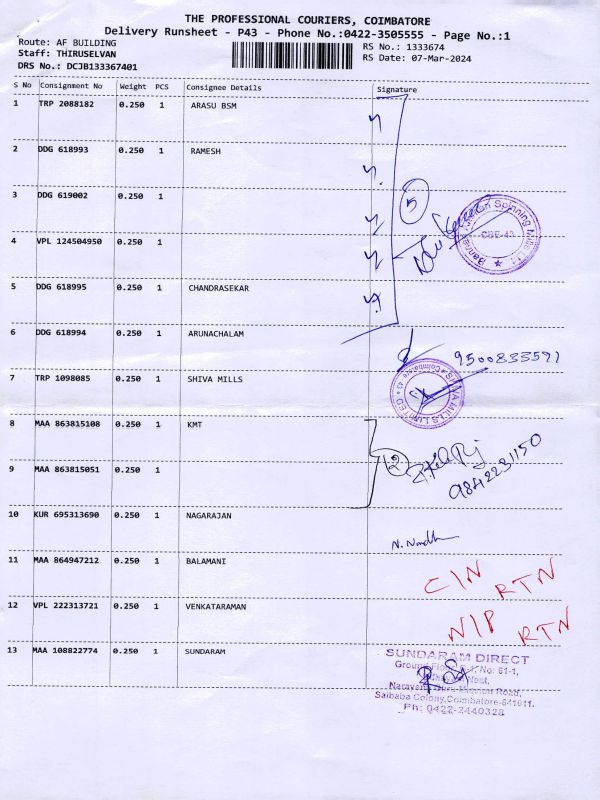 THE PROFESSIONAL COURIERS, COIMBATORE
Delivery Runsheet - P43 - Phone No.:0422-3505555 - Page No.:1
Route: AF BUILDING
Staff: THIRUSELVAN
DRS No.: DCJB133367401
RS No.: 1333674
RS Date: 07-Mar-2024
S No Consignment No Weight PCS Consignee Details Signature
1 TRP 2088182 0.250 1 ARASU BSM
2 DDG 618993 0.250 1 RAMESH
3 DDG 619002 0.250 1
5
Spinning Mills
CBE-43
4 VPL 124504950 0.250 1
5 DDG 618995 0.250 1 CHANDRASEKAR
6 DDG 618994 0.250 1 ARUNACHALAM
9500833591
7 TRP 1098085 0.250 1 SHIVA MILLS
SHIVA MILLS LIMITED Coimbatore 43
8 MAA 863815108 0.250 1 KMT
2
9842231150
9 MAA 863815051 0.250 1
10 KUR 695313690 0.250 1 NAGARAJAN
11 MAA 864947212 0.250 1 BALAMANI
C/N RTN
12 VPL 222313721 0.250 1 VENKATARAMAN
N/P RTN
13 MAA 108822774 0.250 1 SUNDARAM
SUNDARAM DIRECT
Ground No: 61-1,
West,
Road,
Saibaba Colony, Coimbatore-641011.
Ph: 0422-2440328